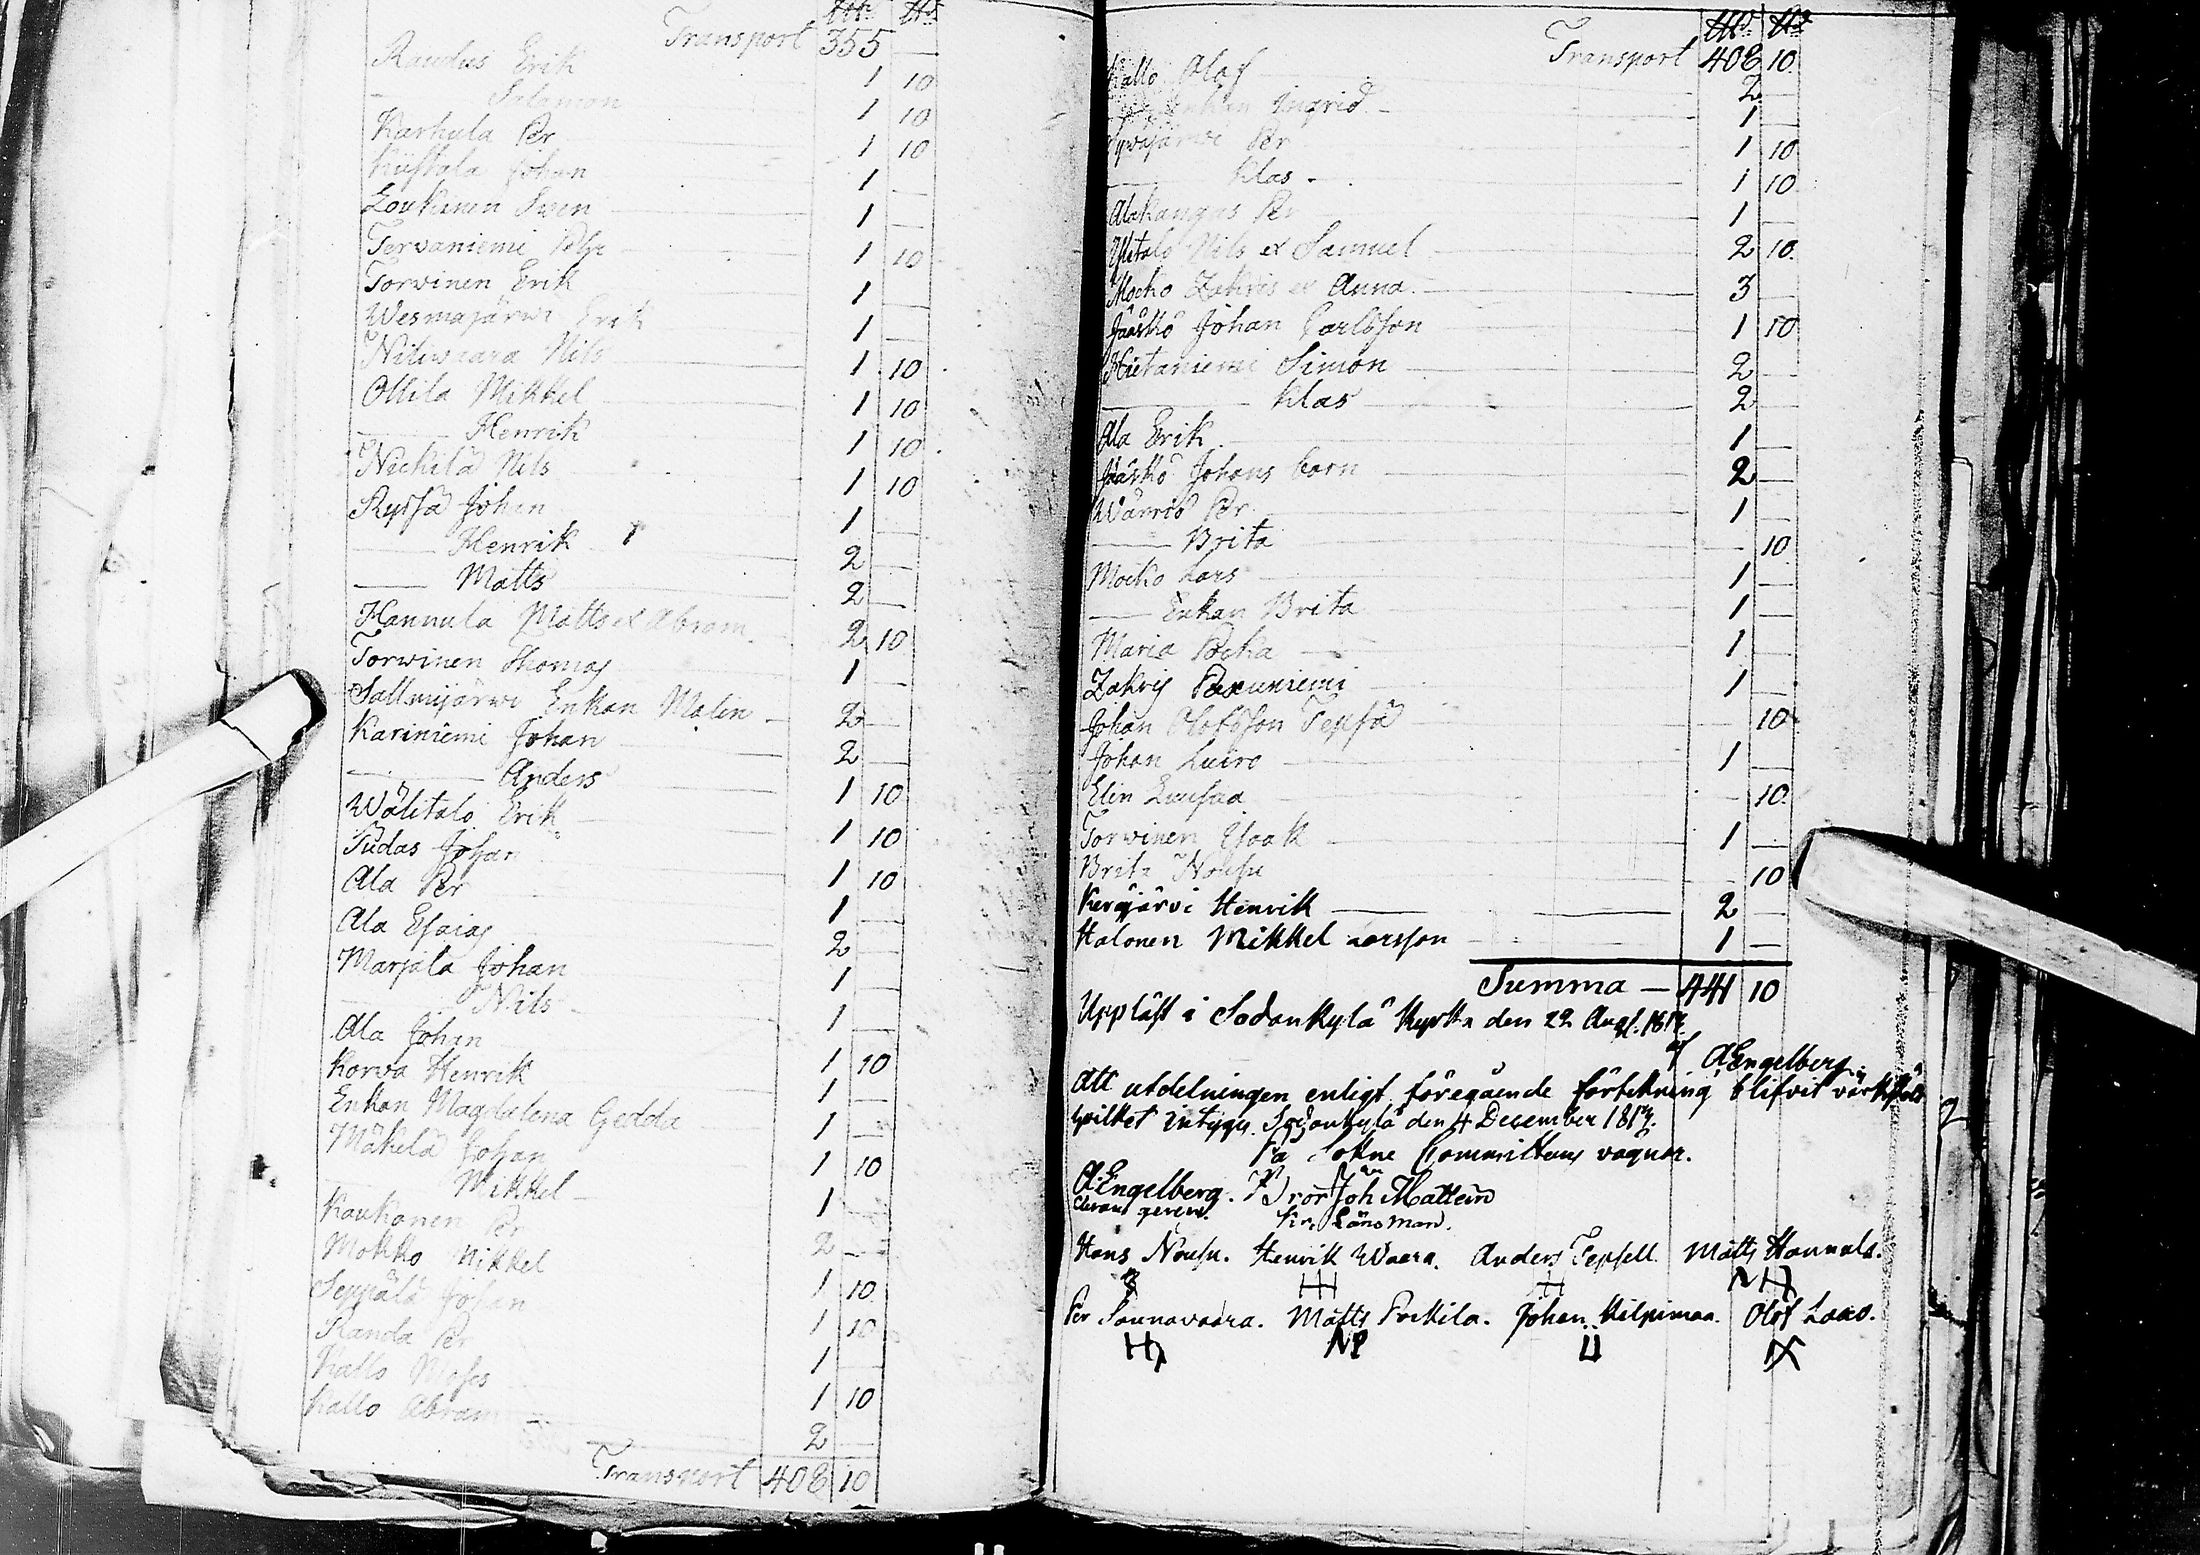 Transport 355 —
Randus Erik 1 10
— Salomon 1 10
Karhula Per 1 10
Johan 1 —
Loukinen Swen 1 —
Tervaniemi 1 10
Torvinen Erik 1 —
Wesmajärwi Erik 1 —
Nilivaara Nils 1 10
Ollila Mikkel 1 10
— Henrik 1 10
Neckilä Nils 1 10
Ryssä Johan 1 —
— Henrik 2 —
— Matts 2 —
Hannula Matts et Abram 2 10
Torwinen Thomas 1 —
Sallmijärwi Enkan Malin 2 —
Kariniemi Johan 2 —
— Anders 1 10
Wälitalo Erik 1 10
Pudas Johan 1 10
Ala Per 1 —
Ala Esaias 2 —
Marjala Johan 1 —
— Nils 1 —
Ala Johan 1 10
Korwa Henrik 1 —
Enkan Magdalena Gedda 1 —
Mäkelä Johan 1 10
— Mikkel 1 —
Koukanen Per 2 —
Mokko Mikkel 1 10
Seppälä Johan 1 10
Randa Per 1 —
Kallo Moses 1 10
Kallo Abram 2 —
Transport 408 10
Transport 408 10
Kallo Olof 2 —
Enkan Ingrid 1 —
Syväjärwi Per 1 10
— Klas 1 10
Alakangas Per 1 —
Ylitalo Nils et Samuel 2 10
Mocko Zakris et Anna 3 —
Jääskö Johan Carlsson 1 10
Hietaniemi Simon 2 —
— Klas 2 —
Ala Erik 1 —
Jääskö Johans barn 2 —
Wärriö Per 1 —
— Brita — 10
Mocko Lars 1 —
— Enkan Brita 1 —
Maria Pocka 1 —
Zakris Paxuniemi 1 —
Johan Olofsson Tepsä — 10
Johan Luiro 1 —
Elin — 10
Torwinen Isaak 1 —
Brita Nousu — 10
Kerojärvi Henrik 2 —
Halonen Mikkel Larsson 1 —
Summa — 441 10
Uppläst i Sodankylä Kyrka den 22 Aug. 1817.
af A Engelberg
Att utdelningen enligt föregående förtekning blifvit värkstäld
hvilket intygas. Sodankylä den 4 December 1817.
På Sokne Committens vägnar.
A. Engelberg. Bror Joh Mattein
Länsman.
Hans Nousu. Henrik Waara. Anders Tepsell. Matts Hannula.
Per Sounavaara. Matts Pockila. Johan Kilpimaa. Olof Laao.